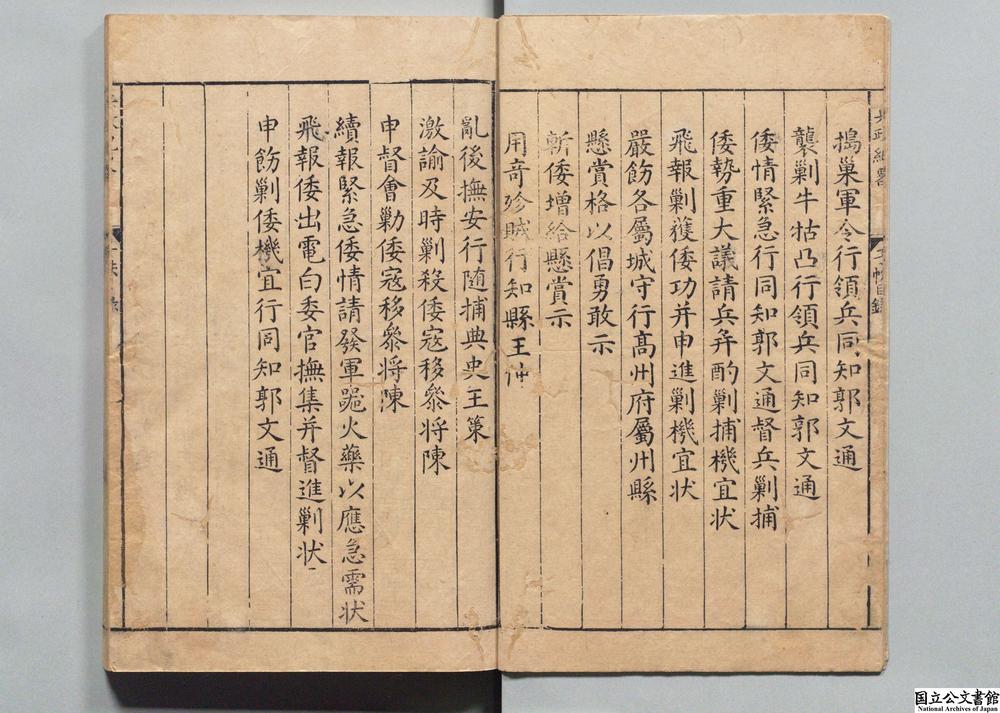 搗巢軍令行領兵同知郭文通
襲剿牛牯凸行領兵同知郭文通
倭情緊急行同知郭文通督兵剿捕
倭勢重大議請兵并酌剿捕機宜状
飛報剿獲倭功并申進剿機宜状
嚴飭各屬城守行髙州府屬州縣
懸賞格以倡勇敢示
斬倭增給懸賞示
用竒殄賊行知縣王
亂後撫安行随捕典史王策
激諭及時剿殺倭寇移叅将陳
申督會勦倭寇移叅将陳
續報緊急倭情請發軍火藥以應急需状
飛報倭出電白委官撫集并督進剿状
申飭剿倭機宜行同知郭文通
国立公文書館
National Archives of Japan